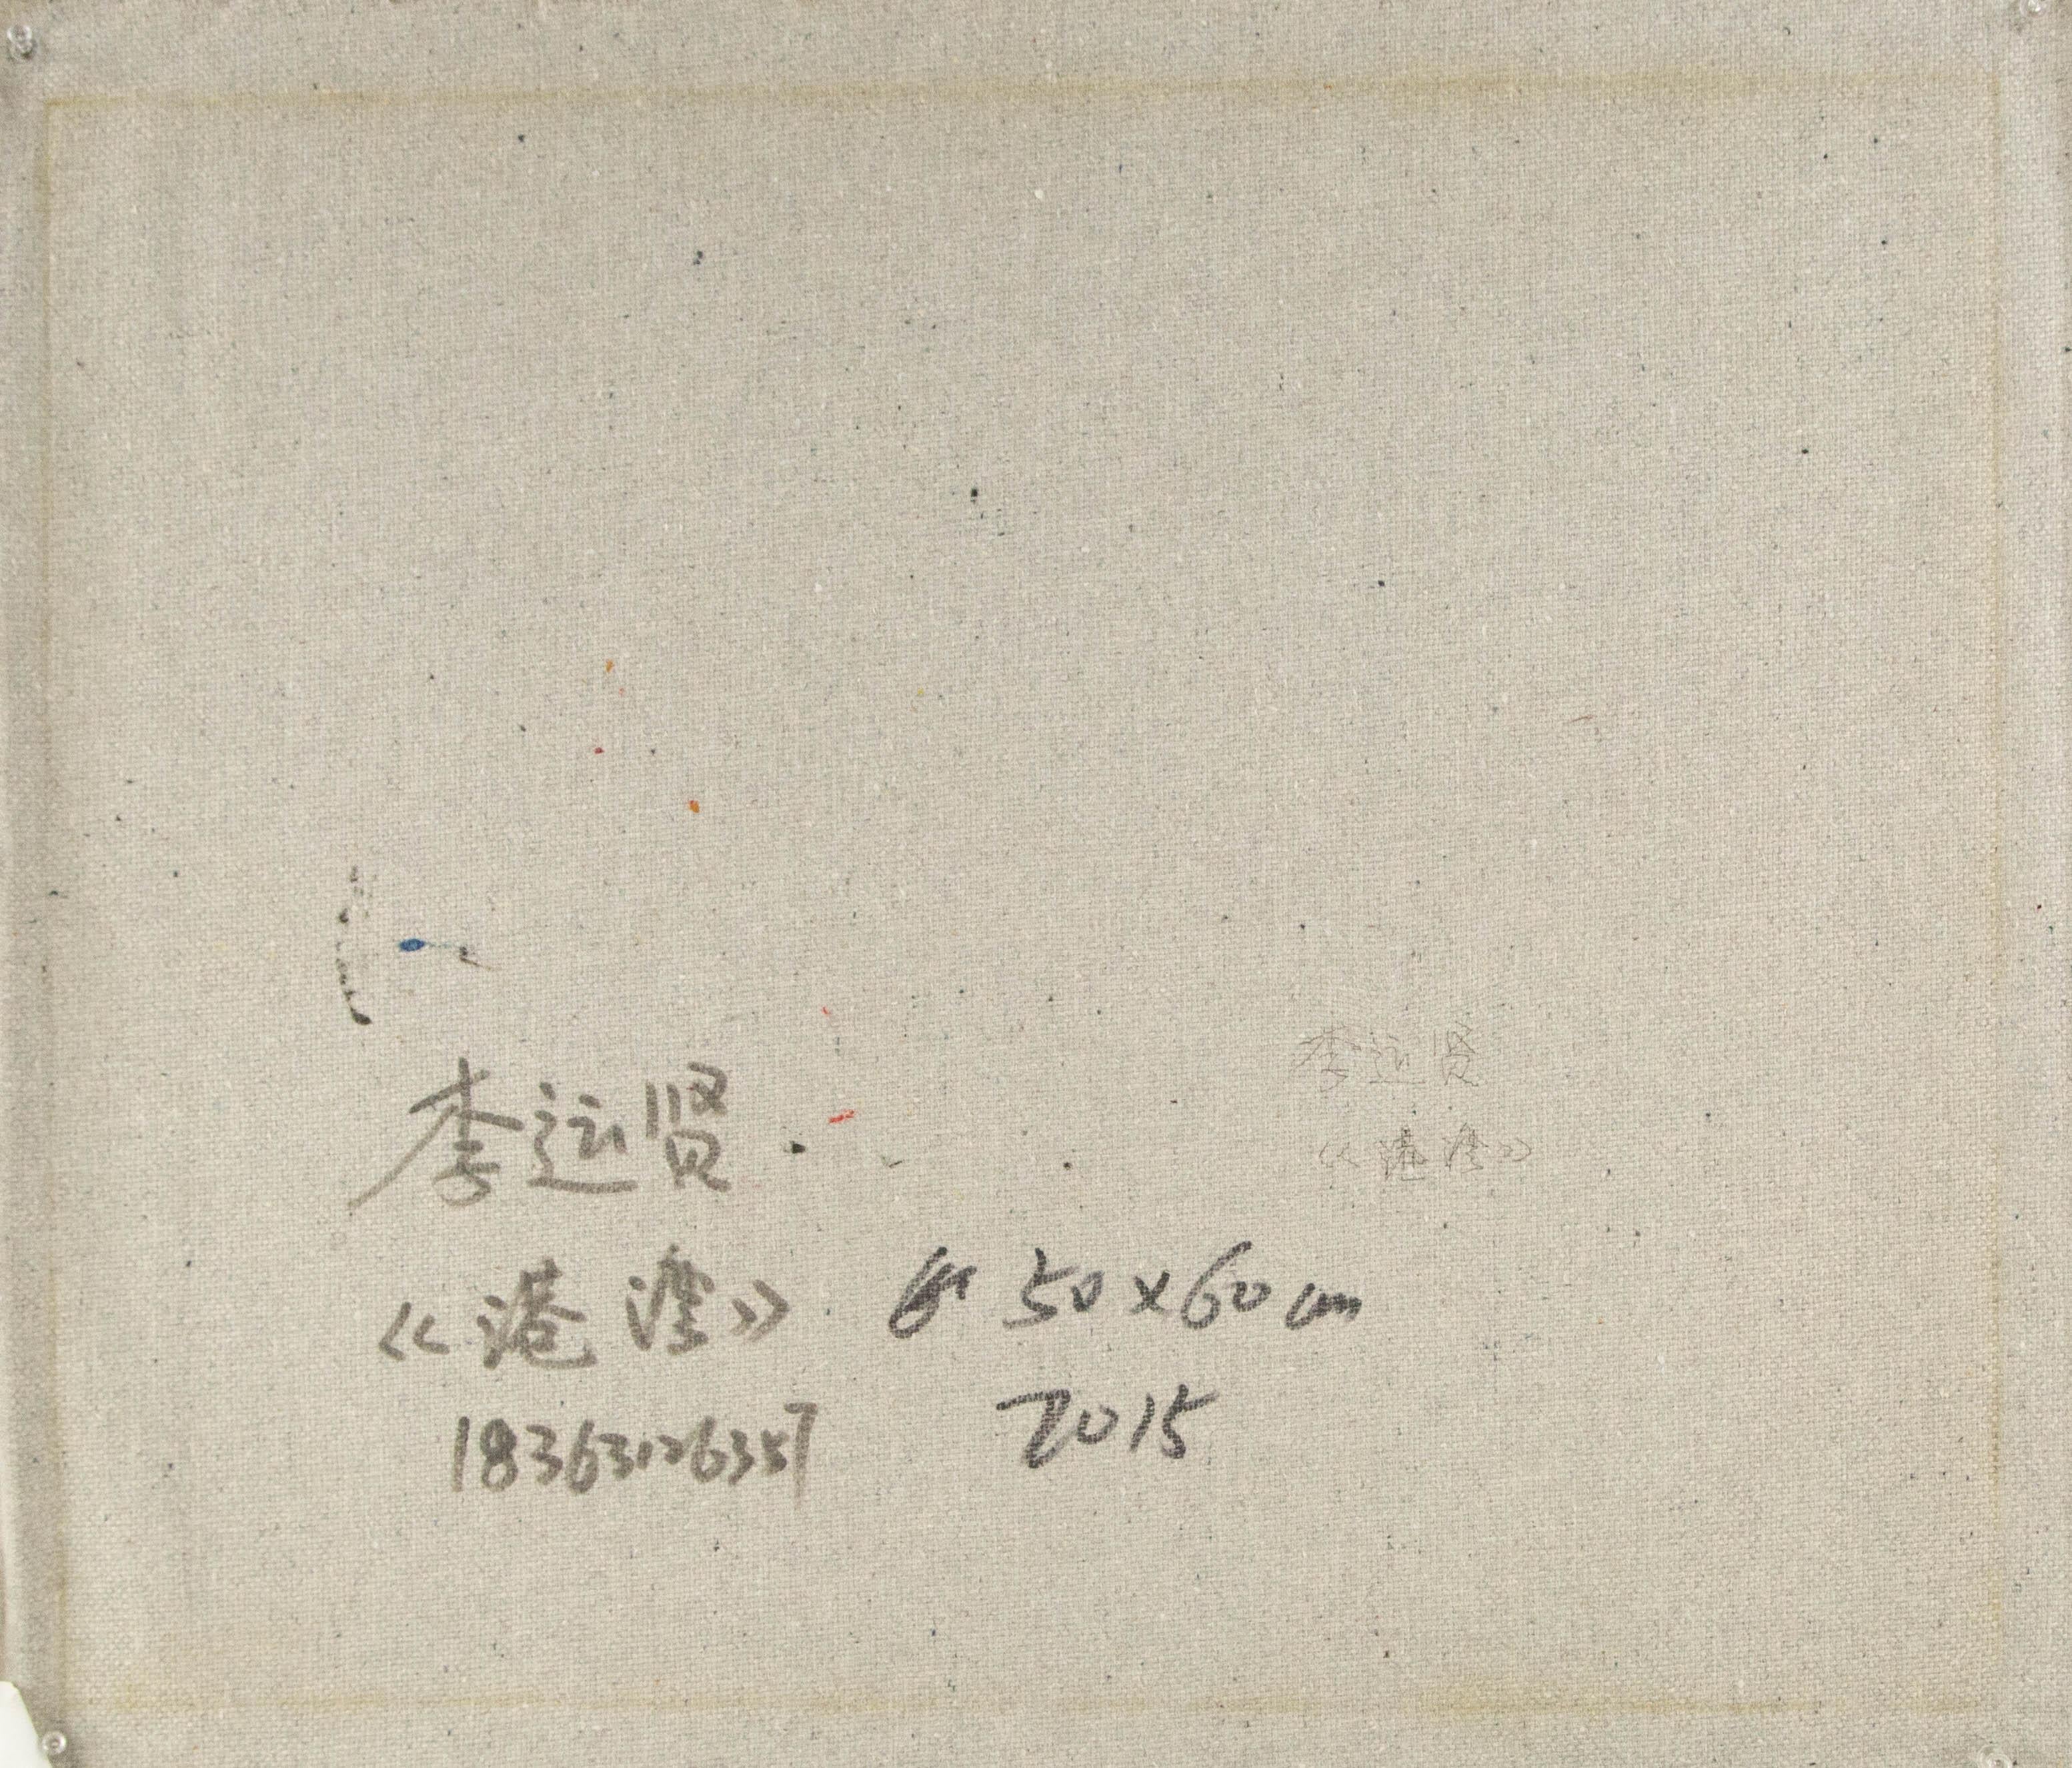 李运贤
李运贤
《港湾》
《港湾》 50×60cm
18363126357 2015